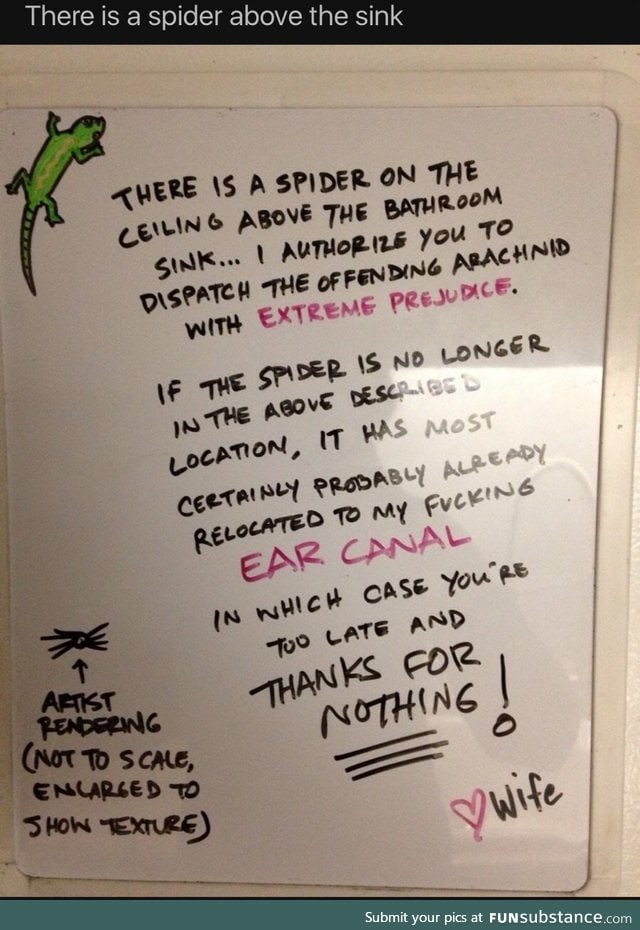 There is a spider above the sink
THERE IS A SPIDER ON THE
CEILING ABOVE THE BATHROOM
SINK... I AUTHORIZE YOU TO
DISPATCH THE OFFENDING ARACHNID
WITH EXTREME PREJUDICE.
IF THE SPIDER IS NO LONGER
IN THE ABOVE DESCRIBED
LOCATION, IT HAS MOST
CERTAINLY PROBABLY ALREADY
RELOCATED TO MY FUCKING
EAR CANAL
IN WHICH CASE YOU'RE
TOO LATE AND
THANKS FOR
NOTHING!
↑
ARTIST
RENDERING
(NOT TO SCALE,
ENLARGED TO
SHOW TEXTURE)
♡ Wife
Submit your pics at FUNsubstance.com